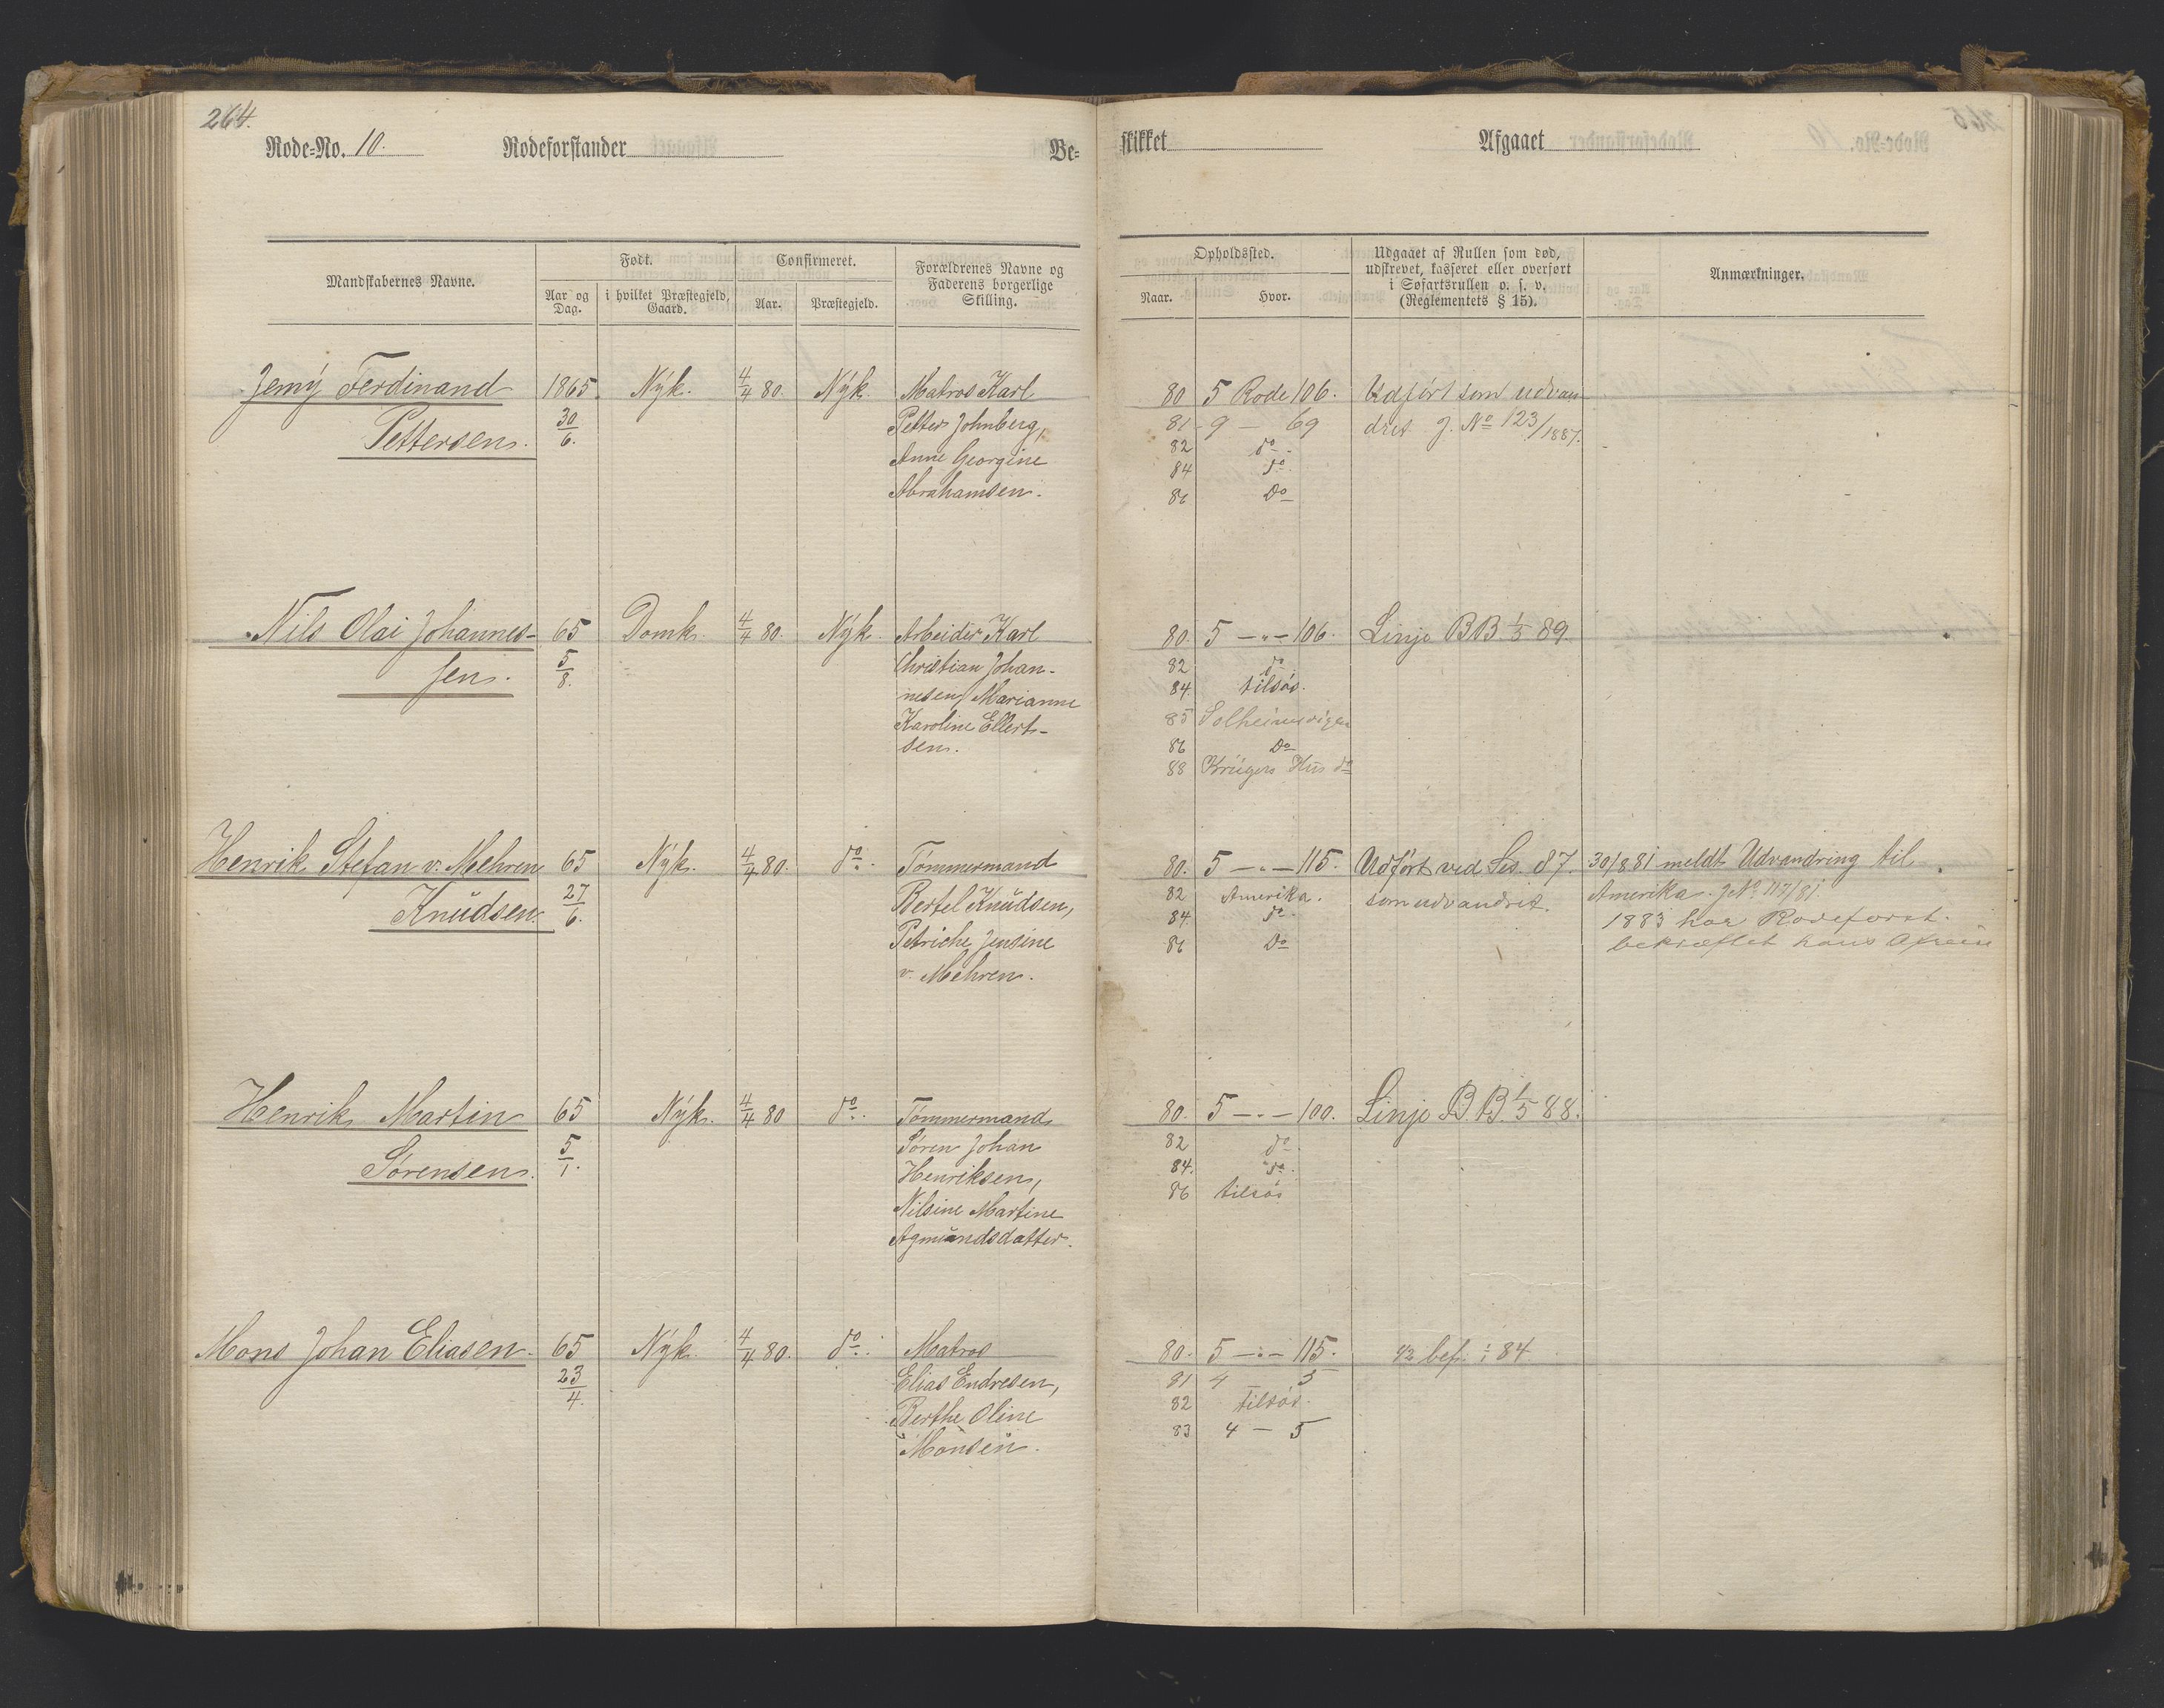 264.
Rode-No. 10. Rodeforstander Be-
skikket Afgaaet
Mandskabernes Navne. Født. Confirmeret. Forældrenes Navne og Faderens borgerlige Stilling.
Aar og Dag. i hvilket Præstegjeld, Gaard. Aar. Præstegjeld.
Opholdssted. Udgaaet af Rullen som død, udskrevet, kasseret eller overført i Søfartsrullen o. s. v. (Reglementets § 15). Anmærkninger.
Naar. Hvor.
Jemy Ferdinand 1865. Nyk. 4/4 80. Nyk. Matros Karl
Pettersen. 30/6. Petter Johnberg,
Anne Georgine
Abrahamsen.
80 5 Rode 106. Udført som udvan
81 9 — 69 dret J. No 123/1887.
82 do
84 do
86 Do
Nils Olai Johannes- 65 Domk. 4/4 80. Nyk. Arbeider Karl
sen. 5/8. Christian Johan-
nesen, Marianne
Karoline Ellert-
sen.
80. 5 — " — 106. Linje BB. 1/5 89.
82 do
84. tilsøs.
85 Solheimsvigen
86 Do
88 Krügers Hus do
Henrik Stefan v. Mehren 65 Nyk. 4/4 80. do. Tømmermand
Knudsen. 27/6. Bertel Knudsen,
Petriche Jensine
v. Mehren.
80. 5 — " — 115. Udført ved Ses. 87. 30/8 81 meldt Udvandring til
82 Amerika. som udvandret. Amerika. J No 117/81
84. do 1883 har Rodeforst.
86 Do bekræftet hans Afreise
Henrik Martin 65 Nyk. 4/4 80 do. Tømmermand
Sørensen. 5/1. Søren Johan
Henriksen,
Nilsine Martine
Agmundsdatter.
80. 5 — " — 100. Linje B.B. 1/5 88.
82 do
84. do.
86 tilsøs
Mons Johan Eliasen. 65 Nyk. 4/4 80. do. Matros
23/4. Elias Endresen,
Berthe Oline
Monsen.
80. 5 — " — 115. 84.
81 4 5
82 tilsøs.
83 4 — 5